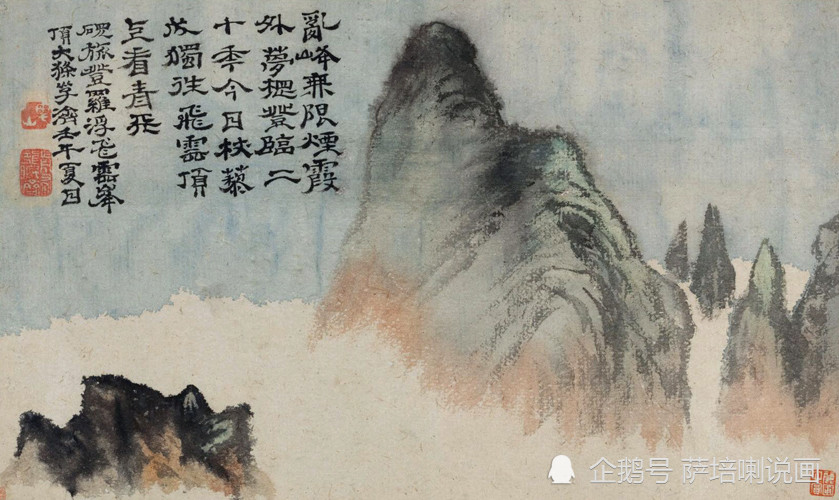 亂峰無限煙霞
外夢登臨二
十年今日杖藜
成獨往飛雲頂
看青天
硯旅登羅浮飛雲峯
頂大滌子濟壬午夏日
企鹅号 萨培喇说画